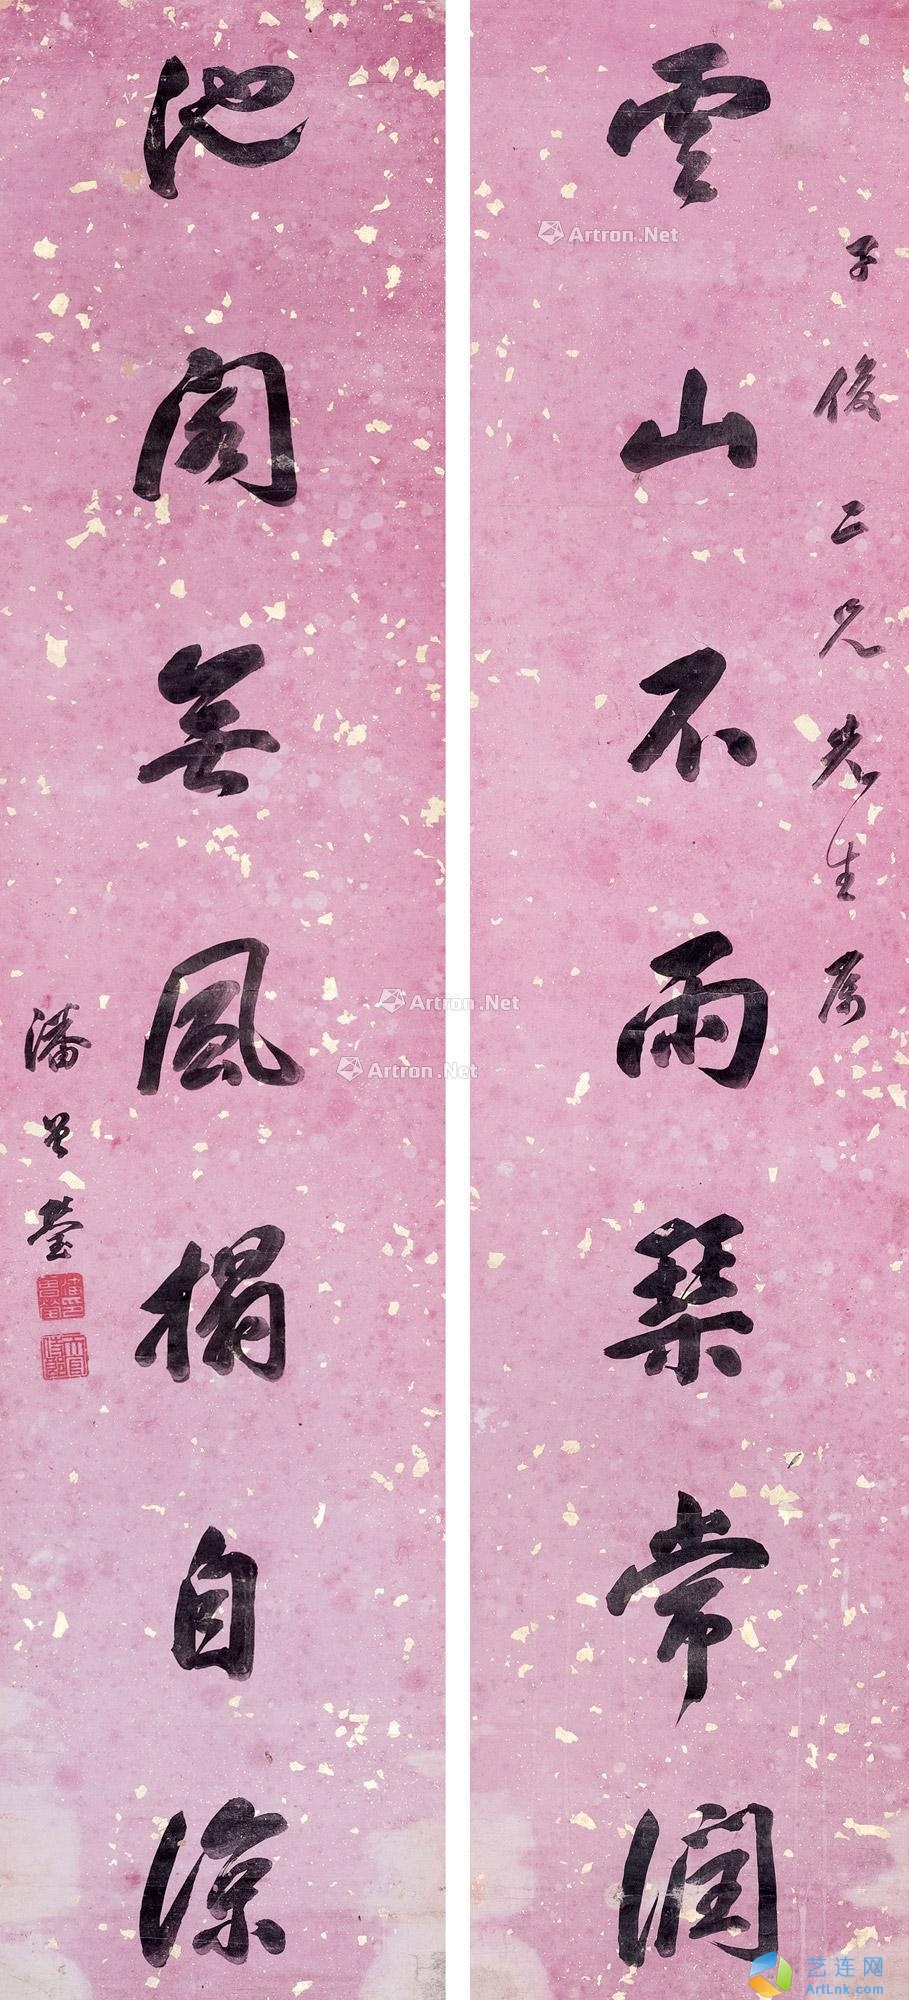 子俊二兄先生属
雲山不雨琴常潤
池閣無風榻自涼
潘曾瑩
Artron.Net
Artron.Net
Artron.Net
艺连网
ArtLnk.com